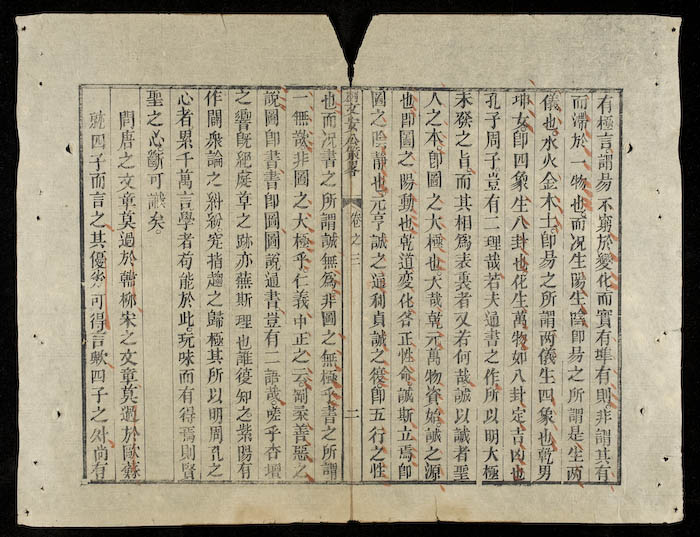 有極言謂易不窮於變化而實有準有則非謂其有
而滯於一物也而況生陽生陰即易之所謂是生兩
儀也水火金木土即易之所謂兩儀生四象也乾男
坤女即四象生八卦也化生萬物如八卦定吉凶也
孔子周子豈有二理哉若夫通書之作所以明大極
未發之旨而其相為表裏者又若何哉誠以誠者聖
人之本即圖之大極也大哉乾元萬物資始誠之源
也即圖之陽動也乾道變化各正性命誠斯立焉即
圖之陰靜也元亨誠之通利貞誠之復即五行之性
文安公策畧 卷之三 二
也而况書之所謂誠無為非圖之無極乎書之所謂
一無哉非圖之大極乎仁義中正之云剛柔善惡之
說圖即書書即圖圖說通書豈有二語哉嗟乎杏壇
之響既絕庭草之跡亦蕪斯理也誰復知之紫陽有
作闢衆論之紛紛究指趨之歸極其所以明周孔之
心者累千萬言學者苟能於此玩味而有得焉則賢
聖之心斷可識矣
問唐之文章莫過於韓柳宋之文章莫過於歐蘇
就四子而言之其優劣可得言歟四子之外尚有